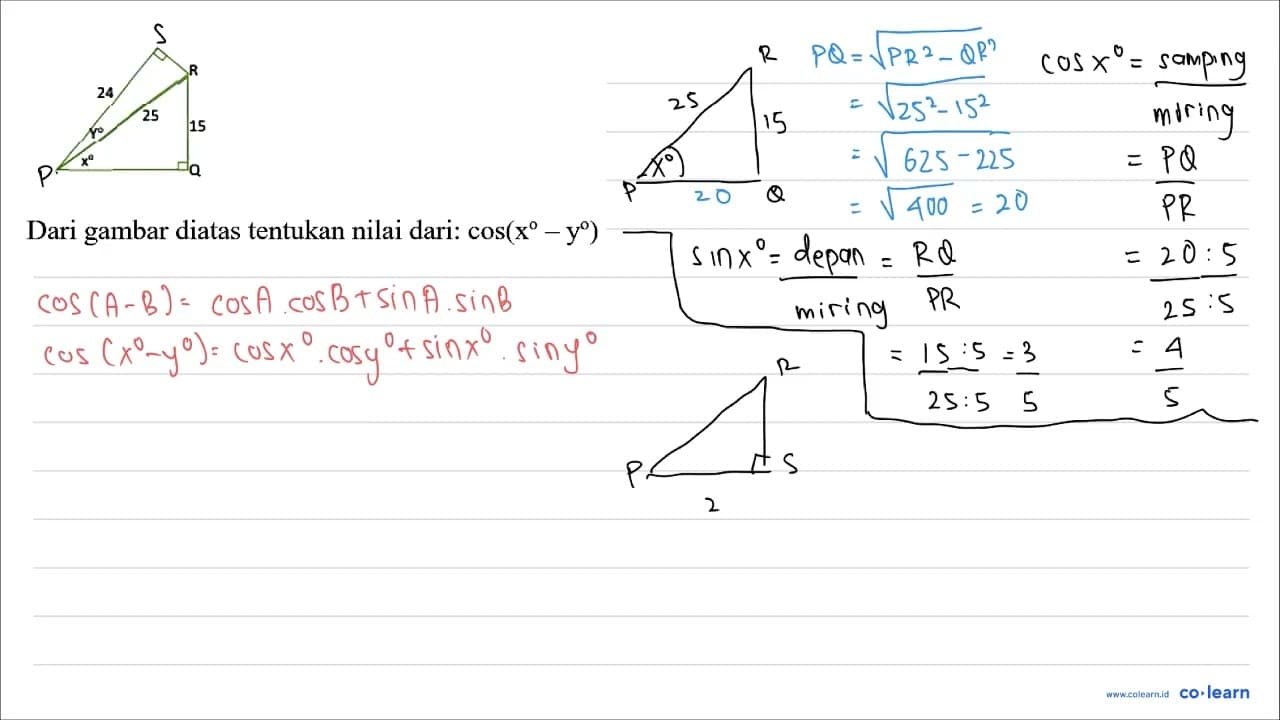 S
R
24
25
15
yº
xº
P
Q
Dari gambar diatas tentukan nilai dari: cos(xº – yº)
cos(A-B)= cosA.cosB+sinA.sinB
cos(xº-yº)=cosxº.cosyº+sinxº.sinyº
R
25
15
xº
P
20
Q
PQ=√PR²-QR²
=√25²-15²
=√625-225
=√400 = 20
cosxº= samping
miring
= PQ
PR
= 20:5
25:5
= 4
5
sinxº= depan = RQ
miring PR
= 15:5 = 3
25:5 5
R
P
S
2
www.colearn.id co·learn